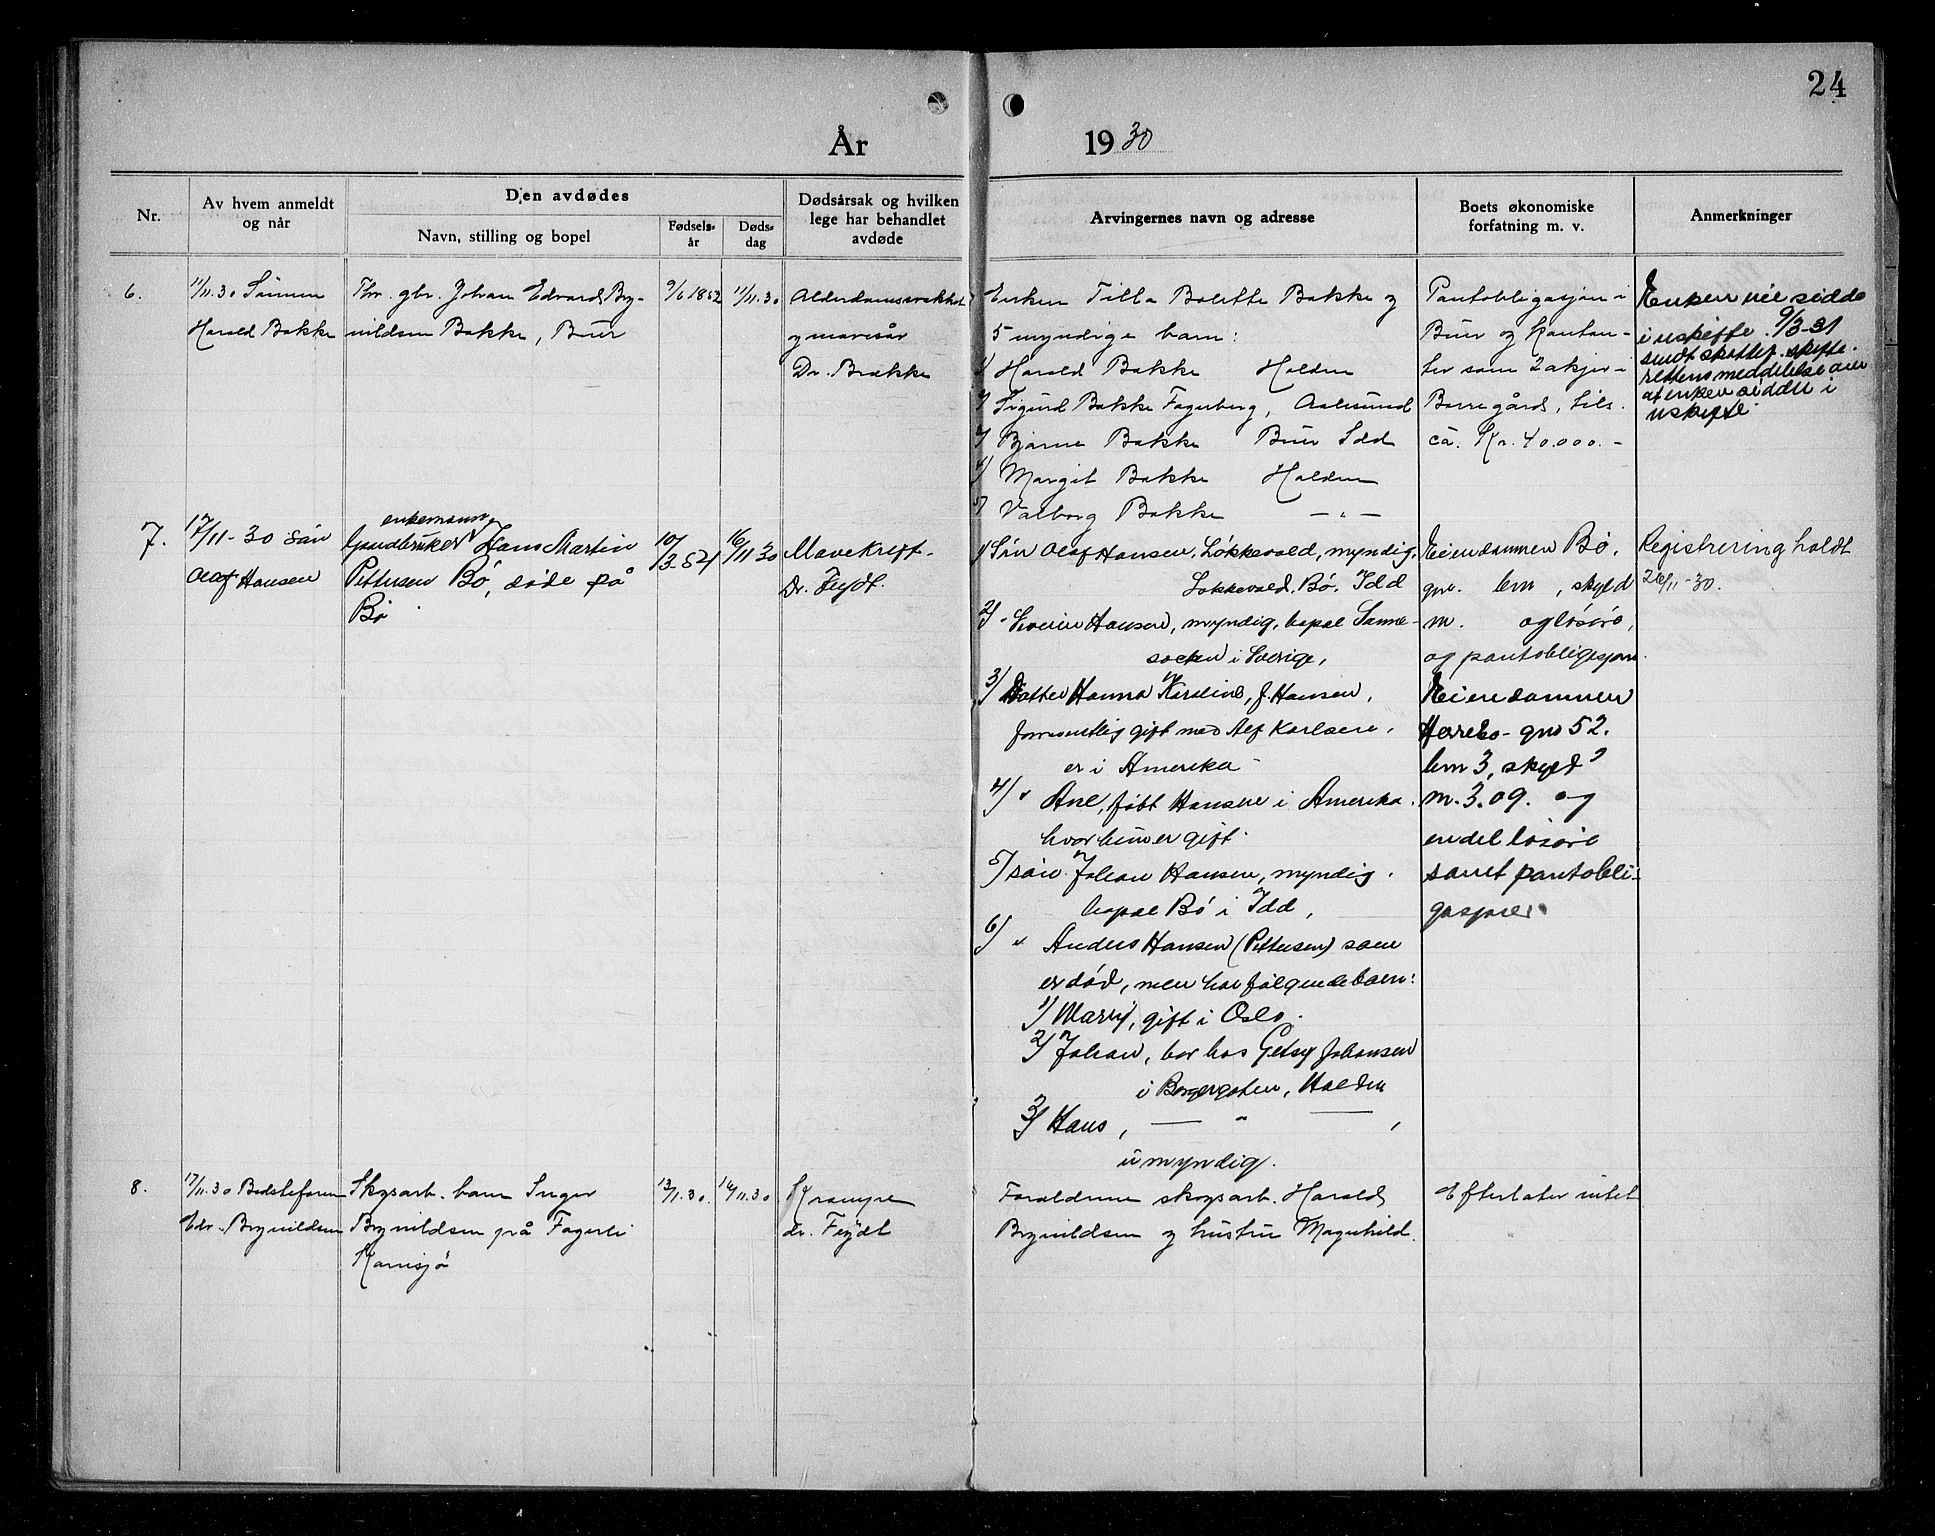 24
År 1930
Nr.
Av hvem anmeldt
og når
Den avdødes
Navn, stilling og bopel
Fødsels-
år
Døds-
dag
Dødsårsak og hvilken
lege har behandlet
avdøde
Arvingernes navn og adresse
Boets økonomiske
forfatning m. v.
Anmerkninger
6.
11/11.30 Sønnen
Harald Bakke
Fhv. gbr. Johan Edvard Bry-
nildsen Bakke, Buer
9/6 1852
11/11.30
Alderdomssvakhet
og mavesår
Dr. Brække
Enken Tilla Bolette Bakke og
5 myndige barn:
1/ Harald Bakke Halden
2/ Sigurd Bakke Fagerberg, Aalesund
3/ Bjarne Bakke Buer Idd
4/ Margit Bakke Halden
5/ Valborg Bakke — „ —
Pantobligasjon i
Buer og kontan-
ter som 2 aksjer i
Borregård, tils.
ca. Kr. 40.000.-
Enken vil sidde
i uskifte. 9/3-31
sendt skattef. skifte-
rettens meddelelse om
at enken sidder i
uskifte
7.
17/11-30 søn
Olaf Hansen
enkemann
Gaardbruker Hans Martin
Pettersen Bø, døde på
Bø
10/3.54
16/11 30
Mavekreft.
Dr. Feydt.
1/ Søn Olaf Hansen, Løkkevold, myndig,
Løkkevold, Bø, Idd
2/ " Severin Hansen, myndig, bopæl Sanne-
socken i Sverige,
3/ Datter Hanna Karoline, f. Hansen,
formentlig gift med Alf Karlsen,
er i Amerika
4/ " Ane, født Hansen i Amerika
hvor hun er gift.
5/ søn Johan Hansen, myndig,
bopæl Bø i Idd,
6/ " Anders Hansen (Pettersen) som
er død, men har følgende barn:
1/ Marry, gift i Oslo.
2/ Johan, bor hos Getsy Johansen
i Borgergaten, Halden
3/ Hans, — " — ,
umyndig.
Eiendommen Bø,
gnr. bnr , skyld
m. og løsøre,
og pantobligasjon.
Eiendommen
Herrebo - gnr 52.
bnr 3, skyld
m. 3.09. og
endel løsøre
samt pantobli-
gasjoner
Registrering holdt
26/11-30.
8.
17/11.30 Bedstefaren
Edv. Brynildsen
Skogsarb. barn Inger
Brynildsen på Fagerli
Kornsjø
13/1.30.
16/11.30
Krampe
dr. Feydt
Foreldrene skogsarb. Harald
Brynildsen og hustru Magnhild.
Efterlater intet